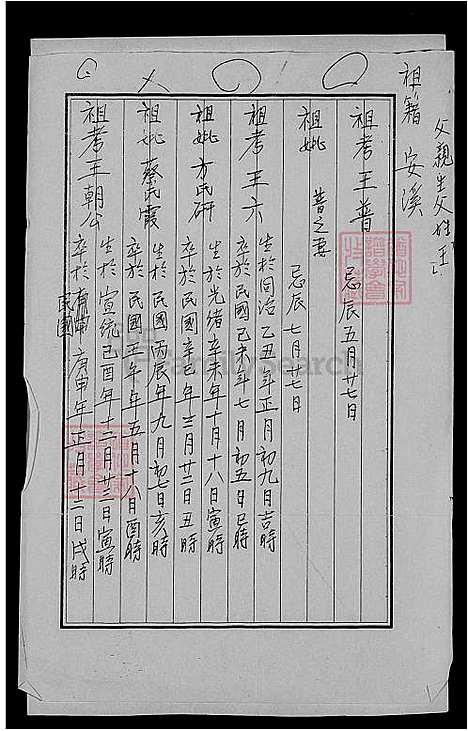 父親生父姓王
祖籍 安溪
祖考王普 忌辰五月廿七日
祖妣 普之妻 忌辰七月廿七日
祖考王六 生於同治乙丑年正月初九日吉時
卒於民國己未年七月初五日巳時
祖妣方氏研 生於光緒辛未年十月十八日寅時
卒於民國辛巳年三月廿二日丑時
祖妣蔡氏霞 生於民國丙辰年九月初七日亥時
卒於民國壬午年五月十八日酉時
祖考王朝公 生於宣統己酉年十二月廿三日寅時
卒於民國庚申年正月十二日戌時
FamilySearch